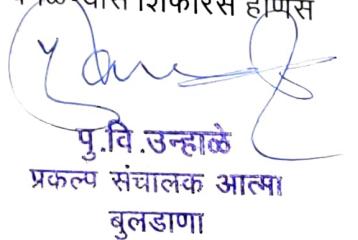 शिफारस होणेस
पु.वि.उन्हाळे
प्रकल्प संचालक आत्मा
बुलडाणा